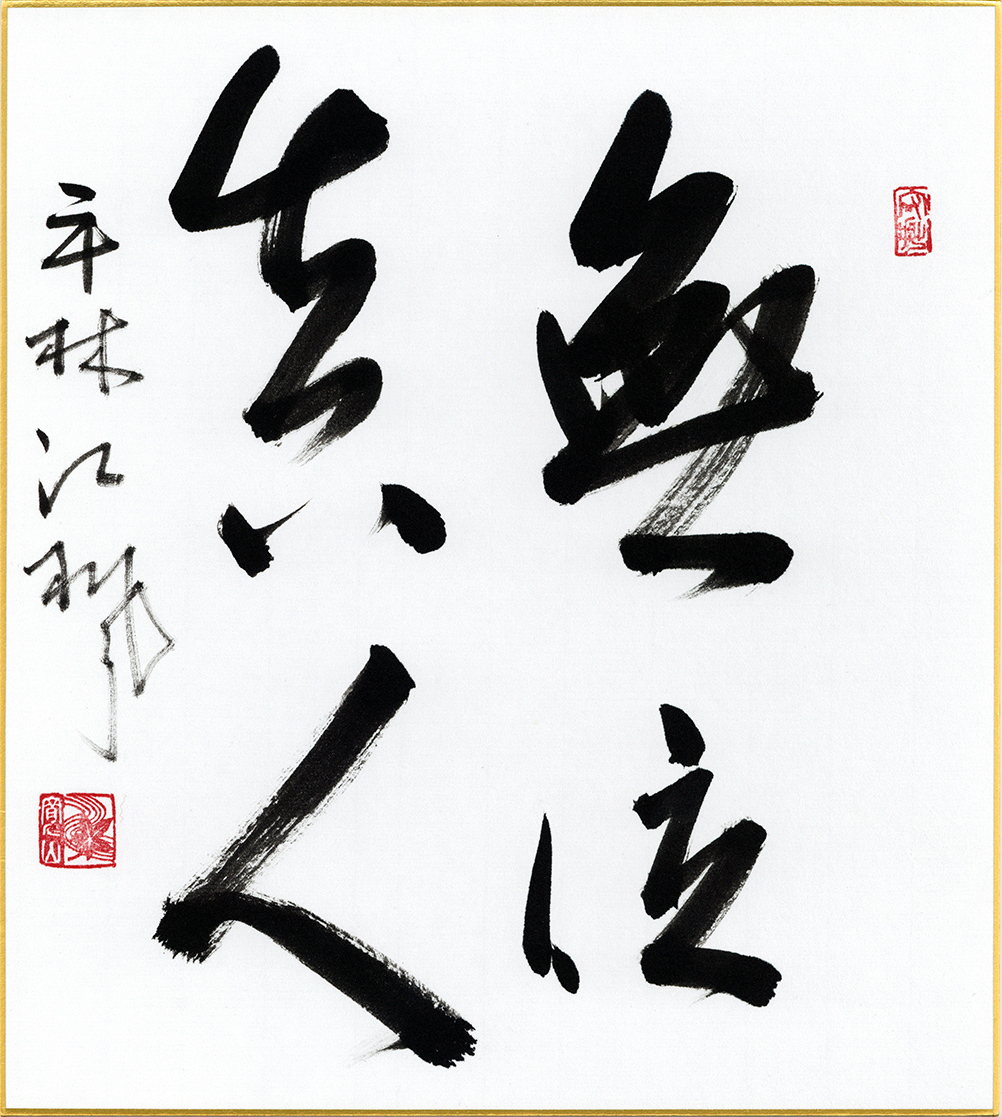 無位
真人
平林江